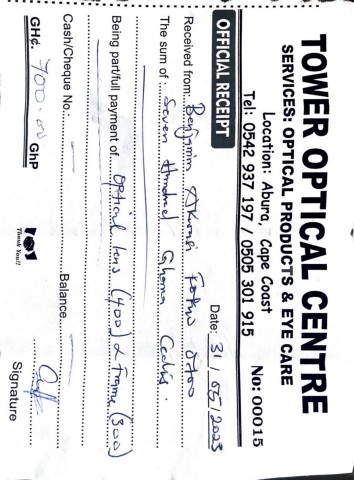 TOWER OPTICAL CENTRE
SERVICES: OPTICAL PRODUCTS & EYE CARE
Location: Abura, Cape Coast
Tel: 0542 937 197 / 0505 301 915
No: 00015
OFFICIAL RECEIPT
Date: 31/05/2023
Received from: Benjamin
The sum of: Seven Hundred Ghana Cedis.
Being part/full payment of optical lens (400) & frame (300)
Cash/Cheque No.: Balance
GH¢. 700.00 GhP
Thank You!!
Signature